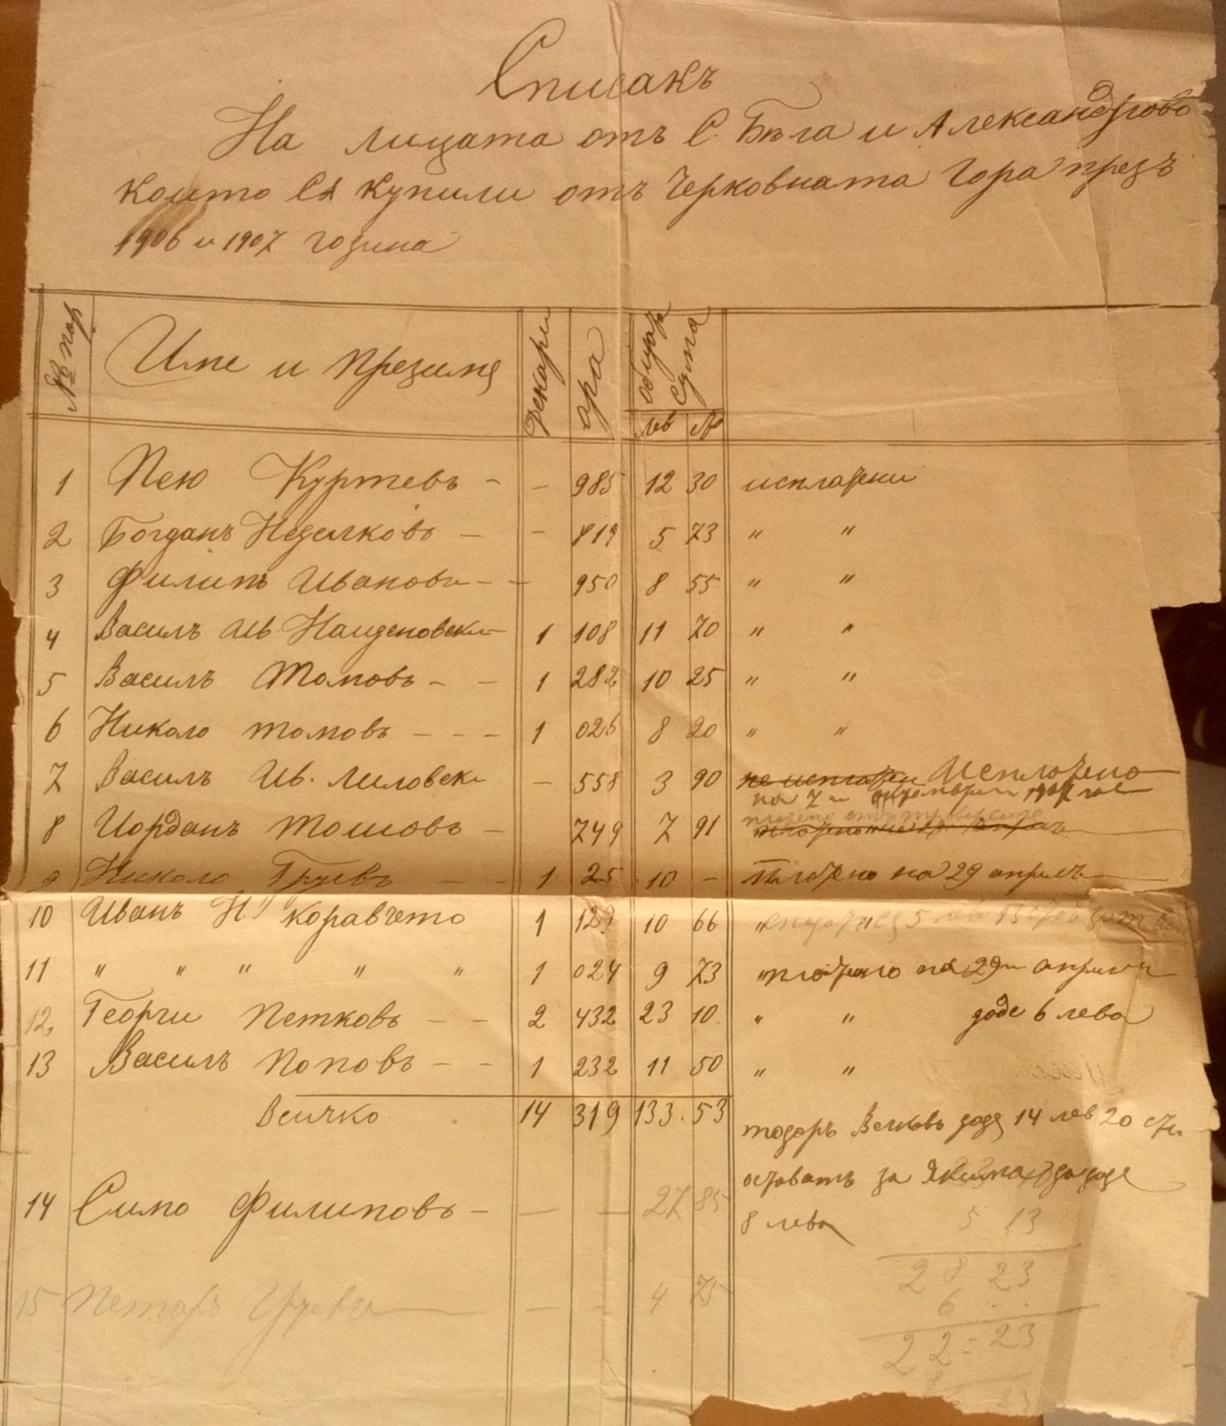 Списакъ
На лицата отъ С. Бѣла и Александрово
които сѫ купили отъ Черковната Гора презъ
1906 и 1907 година
№ пор Име и Презиме декари ара обща сума
лев
1 Пею Куртевъ - - 985 12 30 исплатени
2 Богданъ Неделковъ - - 819 5 73 " "
3 Филипъ Ивановъ - - 950 8 55 " "
4 Василъ Ив Найденовски 1 108 11 70 " "
5 Василъ Томовъ - - 1 282 10 25 " "
6 Николо Томовъ - - - 1 026 8 20 " "
7 Василъ Ив. Лиловски - 558 3 90 не исплатени Исплатено
на 7 октомврий 1907 год
8 Иорданъ Тошовъ - 749 7 91
9 Николо Груевъ - - 1 25 10 - Платено на 29 априлъ
10 Иванъ Н Коравчето 1 129 10 66 "
11 " " " " " 1 024 9 73 " платено на 29 априлъ
12 Георги Петковъ - - 2 432 23 10 " " даде 6 лева
13 Василъ Поповъ - - 1 232 11 50 " "
Всичко 14 319 133.53
тодоръ Велковъ даде 14 лев 20 ст.
оставатъ за да даде
14 Симо Филиповъ - - - 27 85 8 лева
5 13
28 23
6 . .
15 Петъръ - - 4 75
22 = 23